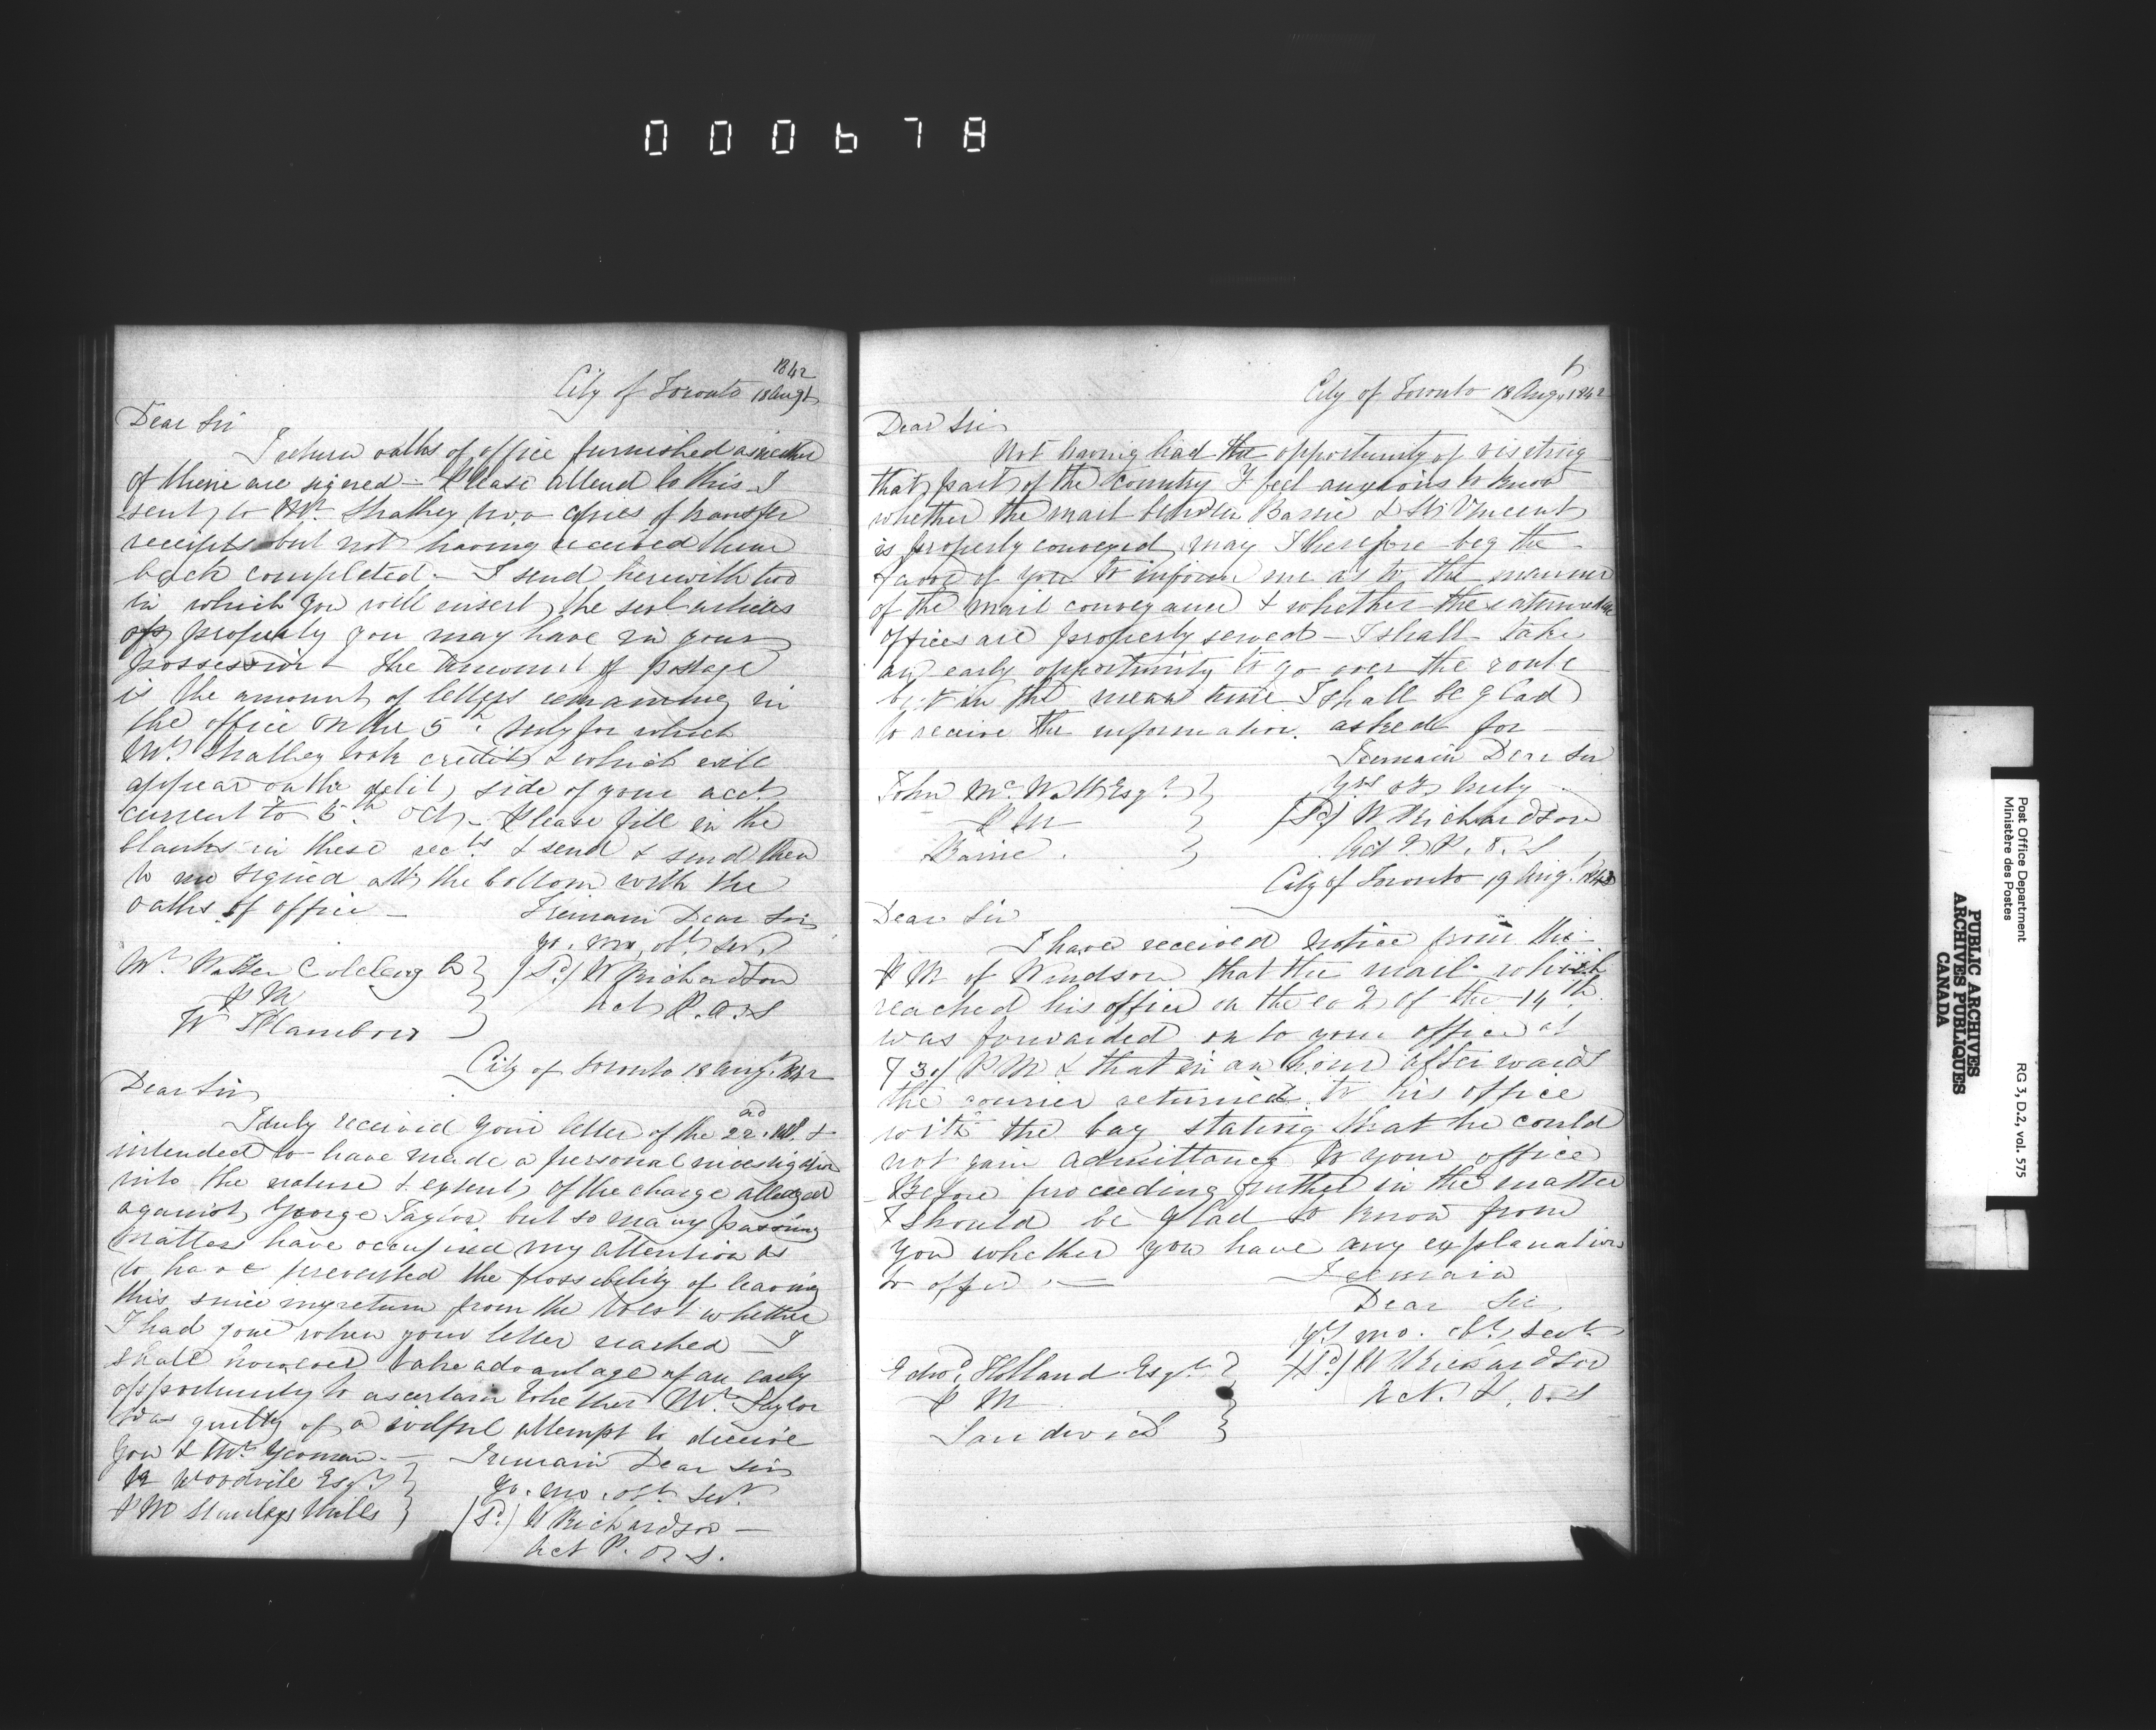 000678
1842
City of Toronto 18 Augt
Dear Sir
I return oaths of office furnished as neither
of them are signed - Please attend to this - I
sent to Mr. Shathey two copies of transfer
receipts but not having received them
back completed - I send herewith two
in which you will insert the sevl articles
of property you may have in your
possession - The amount of postage
is the amount of letters remaining in
the office on the 5th July for which
Mr. Shathey took credit & which will
appear on the debit side of your acct
current to 5th Oct - Please fill in the
blanks in these rects & send & send them
to me signed at the bottom with the
oaths of office -
I remain Dear Sir
yr. mo. obt. sert.
Mr. Walter Colcleugh } (Sd) W Richardson
P M } Act P.O.S
W Flamboro }
City of Toronto 18 Augt. 1842
Dear Sir
I duly received your letter of the 22nd. ult. &
intended to have made a personal investigation
into the nature & extent of the charge alledged
against George Taylor, but so many passing
matters have occupied my attention as
to have prevented the possibility of leaving
this since my return from the West whether
I had gone when your letter reached - I
shall however take advantage of an early
opportunity to ascertain whether Mr. Taylor
was guilty of a wilful attempt to deceive
you & Mr. Yeoman. -
I remain Dear Sir
Woodvile Esqr. } yr. mo. obt. sevt.
P M Stanleys Mills } (Sd) W Richardson -
Act P. O. S.
City of Toronto 18 Aug. 1842
Dear Sir
Not having had the opportunity of visiting
that part of the country I feel anxious to know
whether the mail between Barrie & St. Vincent
is properly conveyed, may I therefore beg the
favor of you to inform me as to the manner
of the mail conveyance & whether the intermediate
offices are properly served - I shall take
an early opportunity to go over the route
but in the mean time I shall be glad
to receive the information asked for -
I remain Dear Sir
John Mc. Watt Esqr. } yrs truly
P M } (Sd) W Richardson
Barrie. } Act P. O. S
City of Toronto 19 Augt. 1842
Dear Sir
I have received notice from the
P M of Windsor that the mail which
reached his office on the of the 14th
was forwarded on to your office at
7 30/ P M & that in an hour afterwards
the courier returned to his office
with the bag stating that he could
not gain admittance to your office
- Before proceeding further in the matter
I should be glad to know from
you whether you have any explanation
to offer -
I remain
Dear Sir
yr. mo. obt. sevt.
Edwd. Holland Esqr. } (Sd) W Richardson
P M } Act. P. O. S
Sandwich }
Post Office Department
Ministère des Postes
RG 3, D.2, vol. 575
PUBLIC ARCHIVES
ARCHIVES PUBLIQUES
CANADA